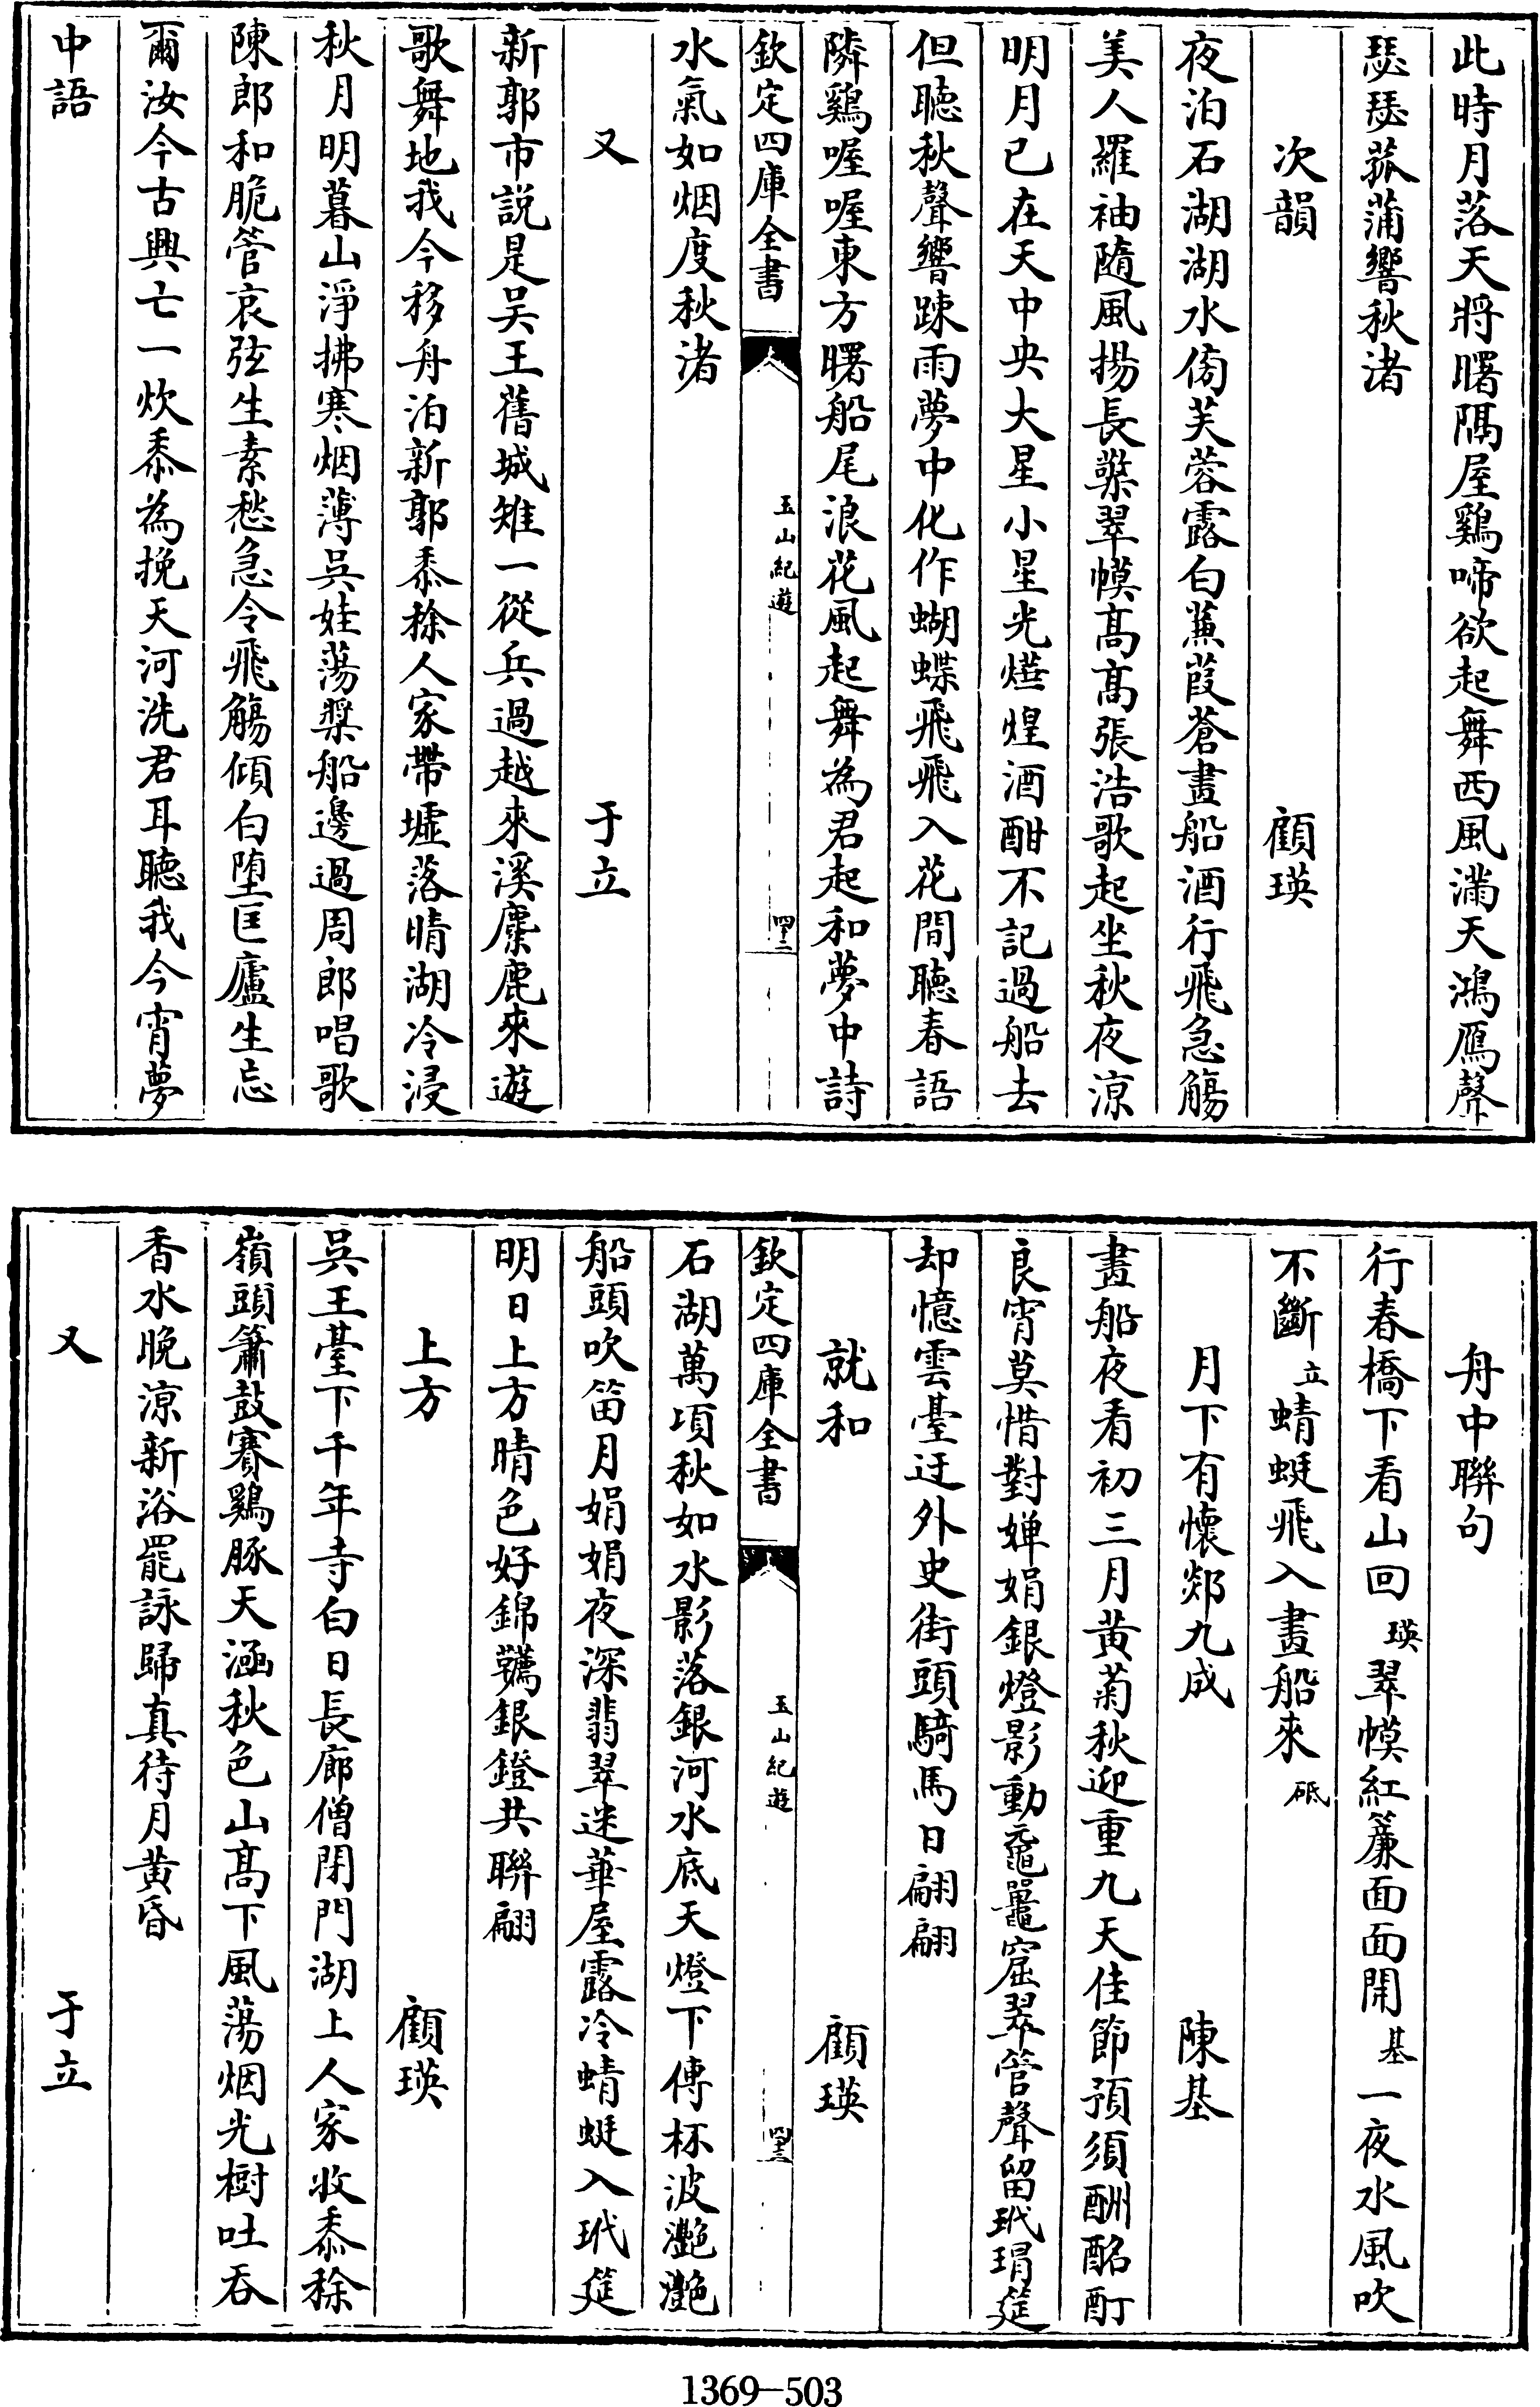 此時月落天將曙隅屋鷄啼欲起舞西風滿天鴻鴈聲
瑟瑟菰蒲響秋渚
次韻 顧瑛
夜泊石湖湖水傍芙蓉露白蒹葭蒼畫船酒行飛急觴
美人羅袖隨風揚長檠翠幙髙髙張浩歌起坐秋夜凉
明月已在天中央大星小星光煒煌酒酣不記過船去
但聽秋聲響踈雨夢中化作蝴蝶飛飛入花間聽春語
隣鷄喔喔東方曙船尾浪花風起舞為君起和夢中詩
欽定四庫全書 玉山紀遊 四十二
水氣如烟度秋渚
又 于立
新郭市説是吴王舊城雉一從兵過越來溪麋鹿來遊
歌舞地我今移舟泊新郭黍稌人家帶墟落晴湖冷浸
秋月明暮山淨拂寒烟薄吴娃蕩槳船邊過周郎唱歌
陳郎和脆管哀弦生素愁急令飛觴傾白墮匡廬生忘
爾汝今古興亡一炊黍為挽天河洗君耳聽我今宵夢
中語
舟中聨句
行春橋下看山回瑛翠幙紅簾面面開基一夜水風吹
不斷立蜻蜓飛入畫船來砥
月下有懷郯九成 陳基
畫船夜看初三月黄菊秋迎重九天佳節預須酬酩酊
良宵莫惜對嬋娟銀燈影動黿鼉窟翠管聲留玳瑁筵
却憶雲臺迂外史街頭騎馬日翩翩
就和 顧瑛
欽定四庫全書 玉山紀遊 四十三
石湖萬頃秋如水影落銀河水底天燈下傳杯波灧灧
船頭吹笛月娟娟夜深翡翠迷華屋露冷蜻蜓入玳筵
明日上方晴色好錦韉銀鐙共聨翩
上方 顧瑛
吴王臺下千年寺白日長廊僧閉門湖上人家收黍稌
嶺頭簫鼓賽鷄豚天涵秋色山髙下風蕩烟光樹吐吞
香水晚凉新浴罷詠歸真待月黄昏
又 于立
1369—503